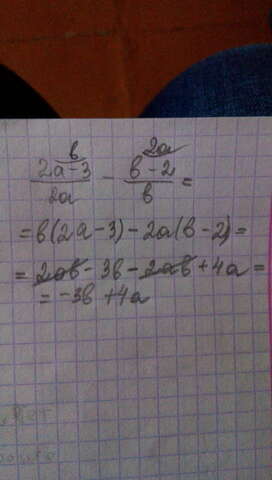 (2a-3)/2a ^b - (b-2)/b ^2a =
= b(2a-3) - 2a(b-2) =
= 2ab - 3b - 2ab + 4a =
= -3b + 4a